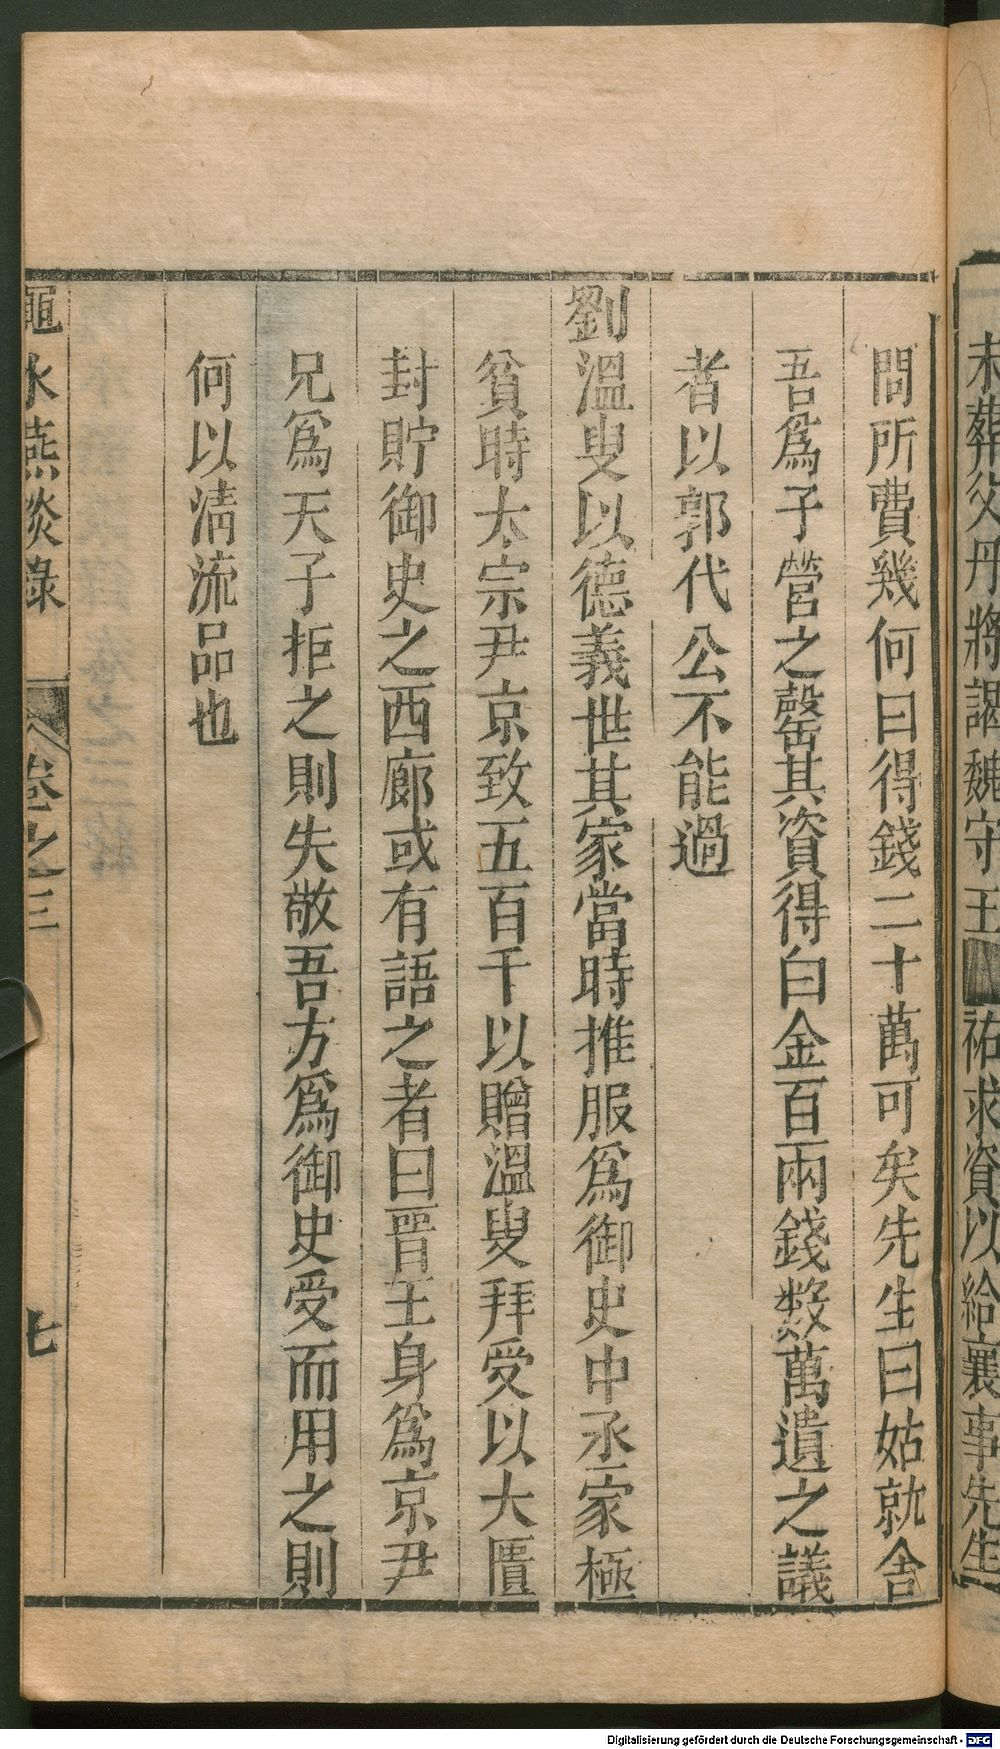 未葬父丹將謁魏守王祐求資以給襄事先生
問所費幾何曰得錢二十萬可矣先生曰姑就舍
吾爲子營之罄其資得白金百兩錢数萬遺之議
者以郭代公不能過
劉溫叟以德義世其家當時推服爲御史中丞家極
貧時太宗尹京致五百千以贈溫叟拜受以大匱
封貯御史之西廊或有語之者曰晉王身爲京尹
兄爲天子拒之則失敬吾方爲御史受而用之則
何以清流品也
澠水燕談錄 卷之三 七
Digitalisierung gefördert durch die Deutsche Forschungsgemeinschaft - DFG